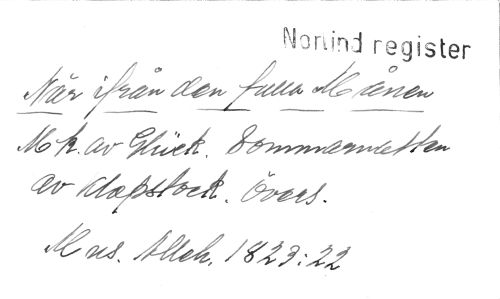 Norlind register
När ifrån den fulla Månen
Mk. av Glück. Sommarnatten
av Klopstock. Övers.
Mus. Alleh. 1823:22